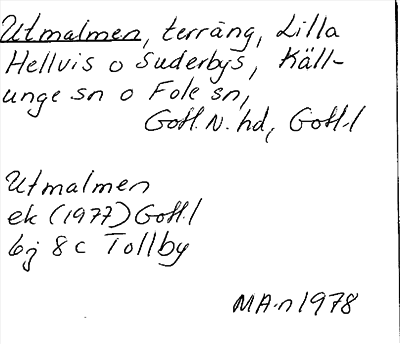 Utmalmen, terräng, Lilla
Hellvis o Suderbys, Käll-
unge sn o Fole sn,
Gotl. N. hd, Gotl. l
Utmalmen
ek (1977) Gotl. l
6j 8c Tollby
MA-n 1978